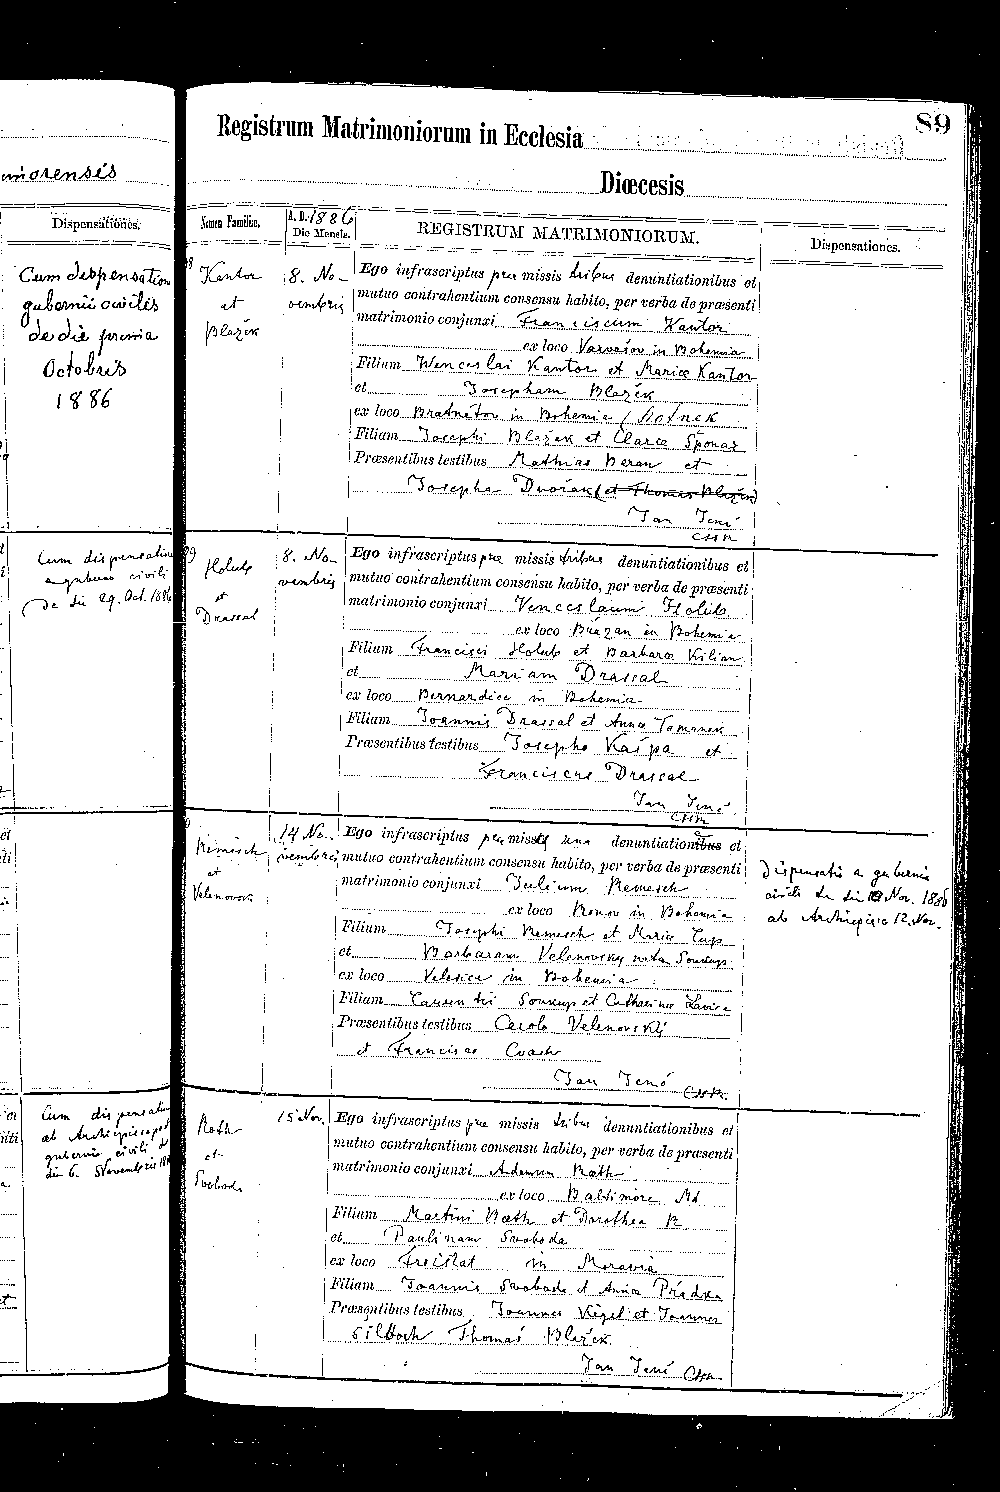 morensis
Dispensationes.
Cum despensation
gubernii civilis
de die prima
Octobris
1886
Cum dispensatio
a guberno civili
de die 29. Oct. 1886
Cum dispensatio
ab Archiepiscopo
gubernio civili d
die 6. Novembris 18
Registrum Matrimoniorum in Ecclesia
89
Diœcesis
Nomen Familiæ.
A. D. 1886
Die Mensis.
REGISTRUM MATRIMONIORUM.
Dispensationes.
Kantor
et
Blažek
8. No-
vembris
Ego infrascriptus præ missis tribus denuntiationibus et
mutuo contrahentium consensu habito, per verba de præsenti
matrimonio conjunxi Franciscum Kantor
ex loco Varvažov in Bohemia
Filium Wenceslai Kantor et Mariæ Kantor
et Josepham Blažek
ex loco Bratnětov in Bohemia
Filiam Josephi Blažek et Claræ Sponar
Præsentibus testibus Mathias Beran et
Josepho Dvořak (et Thomas Blažek)
Jan Jenč
CSSR
89
Holub
et
Drassal
8. No-
vembris
Ego infrascriptus præ missis tribus denuntiationibus et
mutuo contrahentium consensu habito, per verba de præsenti
matrimonio conjunxi Venceslaum Holub
ex loco Brazan in Bohemia
Filium Francisci Holub et Barbara Kilian
et Mariam Drassal
ex loco Bernardice in Bohemia
Filiam Joannis Drassal et Anna Tomanek
Præsentibus testibus Josepho Kašpa et
Franciscus Drassal
Jan Jenč
CSSR
Nemesch
et
Velenovsk
14 No-
vembris
Ego infrascriptus præ missa una denuntiationibus et
mutuo contrahentium consensu habito, per verba de præsenti
matrimonio conjunxi Julium Nemesch
ex loco Ronov in Bohemia
Filium Josephi Nemesch et Maria Cap
et Barbaram Velenovsky nata Soukup
ex loco Velesice in Bohemia
Filiam Laurentii Soukup et Catharina
Præsentibus testibus Carolo Velenovský
et Francisco
Jan Jenč CSSR.
Dispensatio a gubernio
civili de die Nov. 1886
ab Archiepisco 12. Nov.
Roth
et
Svoboda
15 Nov.
Ego infrascriptus præ missis tribus denuntiationibus et
mutuo contrahentium consensu habito, per verba de præsenti
matrimonio conjunxi Adamum Roth
ex loco Baltimore Md
Filium Martini Roth et Dorothea R
et Paulinam Swoboda
ex loco Freistat in Moravia
Filiam Joannis Swoboda et Anna
Præsentibus testibus Joannes Kigel et Joannes
Thomas Blažek
Jan Jenč CSSR